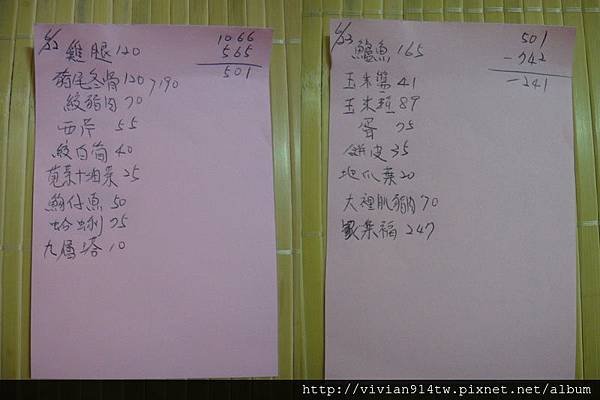 6/22
1066
565
501
雞腿 120
豬尾冬骨 120 > 190
絞豬肉 70
西芹 55
絞白筍 40
莧菜+油菜 25
魩仔魚 50
蛤蜊 75
九層塔 10
6/23
501
-742
-241
鱸魚 165
玉米醬 41
玉米粒 89
蛋 75
餅皮 35
地瓜葉 20
大裡肌豬肉 70
集福 247
http://vivian914tw.pixnet.net/album